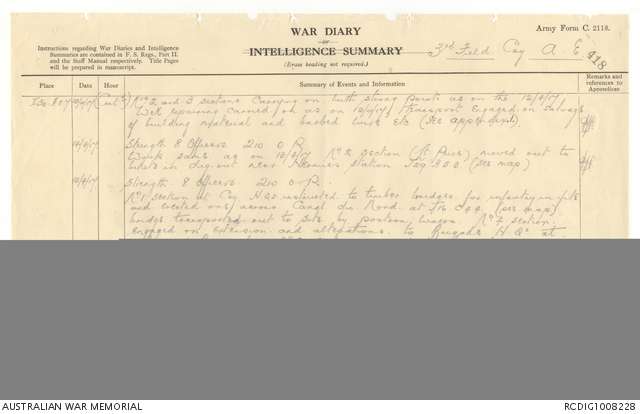 WAR DIARY
or
INTELLIGENCE SUMMARY
(Erase heading not required.)
Army Form C. 2118.
Instructions regarding War Diaries and Intelligence
Summaries are contained in F. S. Regs., Part II.
and the Staff Manual respectively. Title Pages
will be prepared in manuscript.
3rd Field Coy A. E.
418
Place Date Hour Summary of Events and Information Remarks and references to Appendices
No 2 and 3 sections Carrying on with Strong Points as on the 12/4/17
Well repairing carried on as on 12/4/17, Transport Engaged on Salvage
of building material and barbed wire etc (See appendix)
14/4/17 Strength 8 Officers 210 O R.
Work same as on 13/4/17 No 2 section moved out to
dug-out near Station (See map)
15/4/17 Strength 8 Officers 210 O R.
No 1 Section at Coy H Qs instructed to timber bridges for infantry in file
and erected one across Canal du Nord at (see map)
bridge transported out to site by pontoon wagon. No 2 section
engaged on extension and alterations to Brigade H Qs at
AUSTRALIAN WAR MEMORIAL
RCDIG1008228